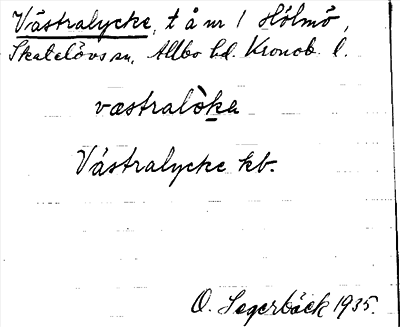 Västralycke, t å nr 1 Hölmö,
Skatelövs sn, Allbo hd. Kronob. l.
vastralòka
Västralycke kb.
O. Segerbäck 1935.